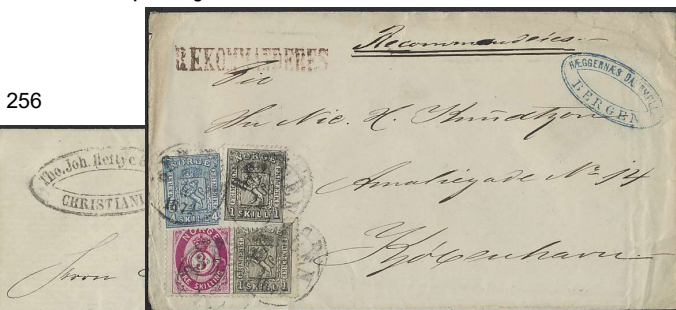 256
Tho. Joh. Heftye &
CHRISTIANI
Herrn
REKOMMANDERES
Recommanderes
BERGEN
Til
Hr. Nic. H. Knudtzon
Amaliegade No 14
Kjøbenhavn
NORGE
4 SKILL 4
NORGE
1 SKILL 1
NORGE
3
SKILLING
1 SKILL 1